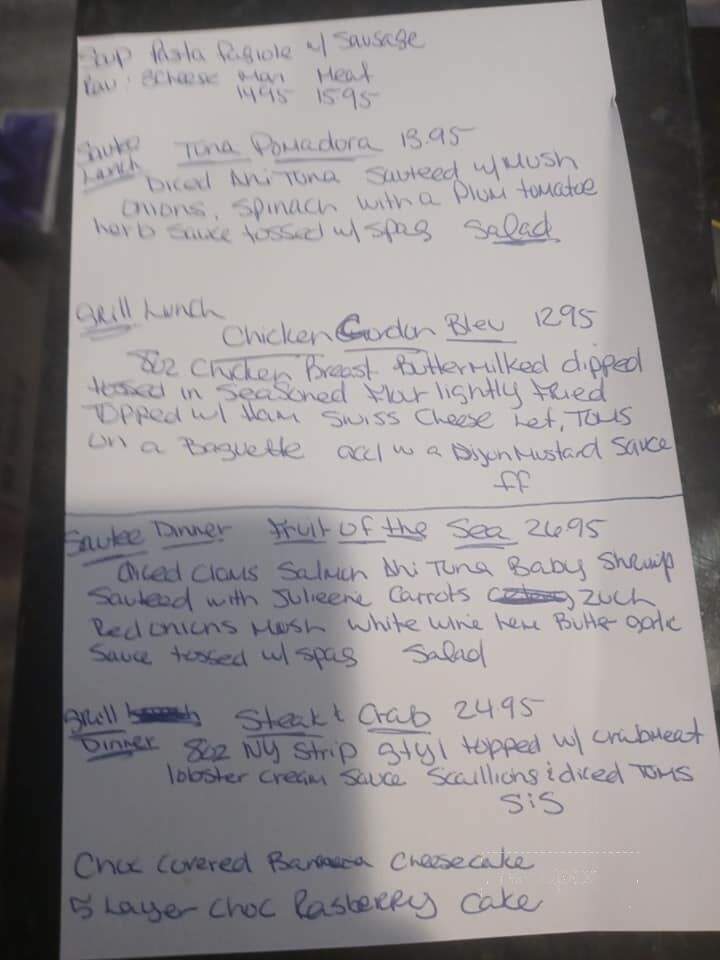 Soup Pasta Fagiole w/ Sausage
Rav: 3 Cheese Mari Meat
1495 15.95
Sautee Tuna Pomadora 13.95
Lunch Diced Ahi Tuna Sauteed w/ Mush
onions, spinach with a Plum tomatoe
herb sauce tossed w/ spag Salad
Grill Lunch
Chicken Cordon Bleu 1295
8oz Chicken Breast Buttermilked dipped
tossed in seasoned flour lightly fried
Topped w/ Ham Swiss Cheese Let, Toms
on a Baguette acc/ w a Dijon Mustard Sauce
ff
Sautee Dinner Fruit of the Sea 2695
Diced Clams Salmon Ahi Tuna Baby Shrimp
Sauteed with Julieene Carrots Zuch
Red onions Mush White Wine Butter garlic
Sauce tossed w/ spag Salad
Grill Steak & Crab 2495
Dinner 8oz NY Strip gtyl topped w/ crabmeat
lobster cream sauce Scallions & diced Toms
SiS
Choc Covered Banana Cheesecake
5 Layer Choc Rasberry Cake